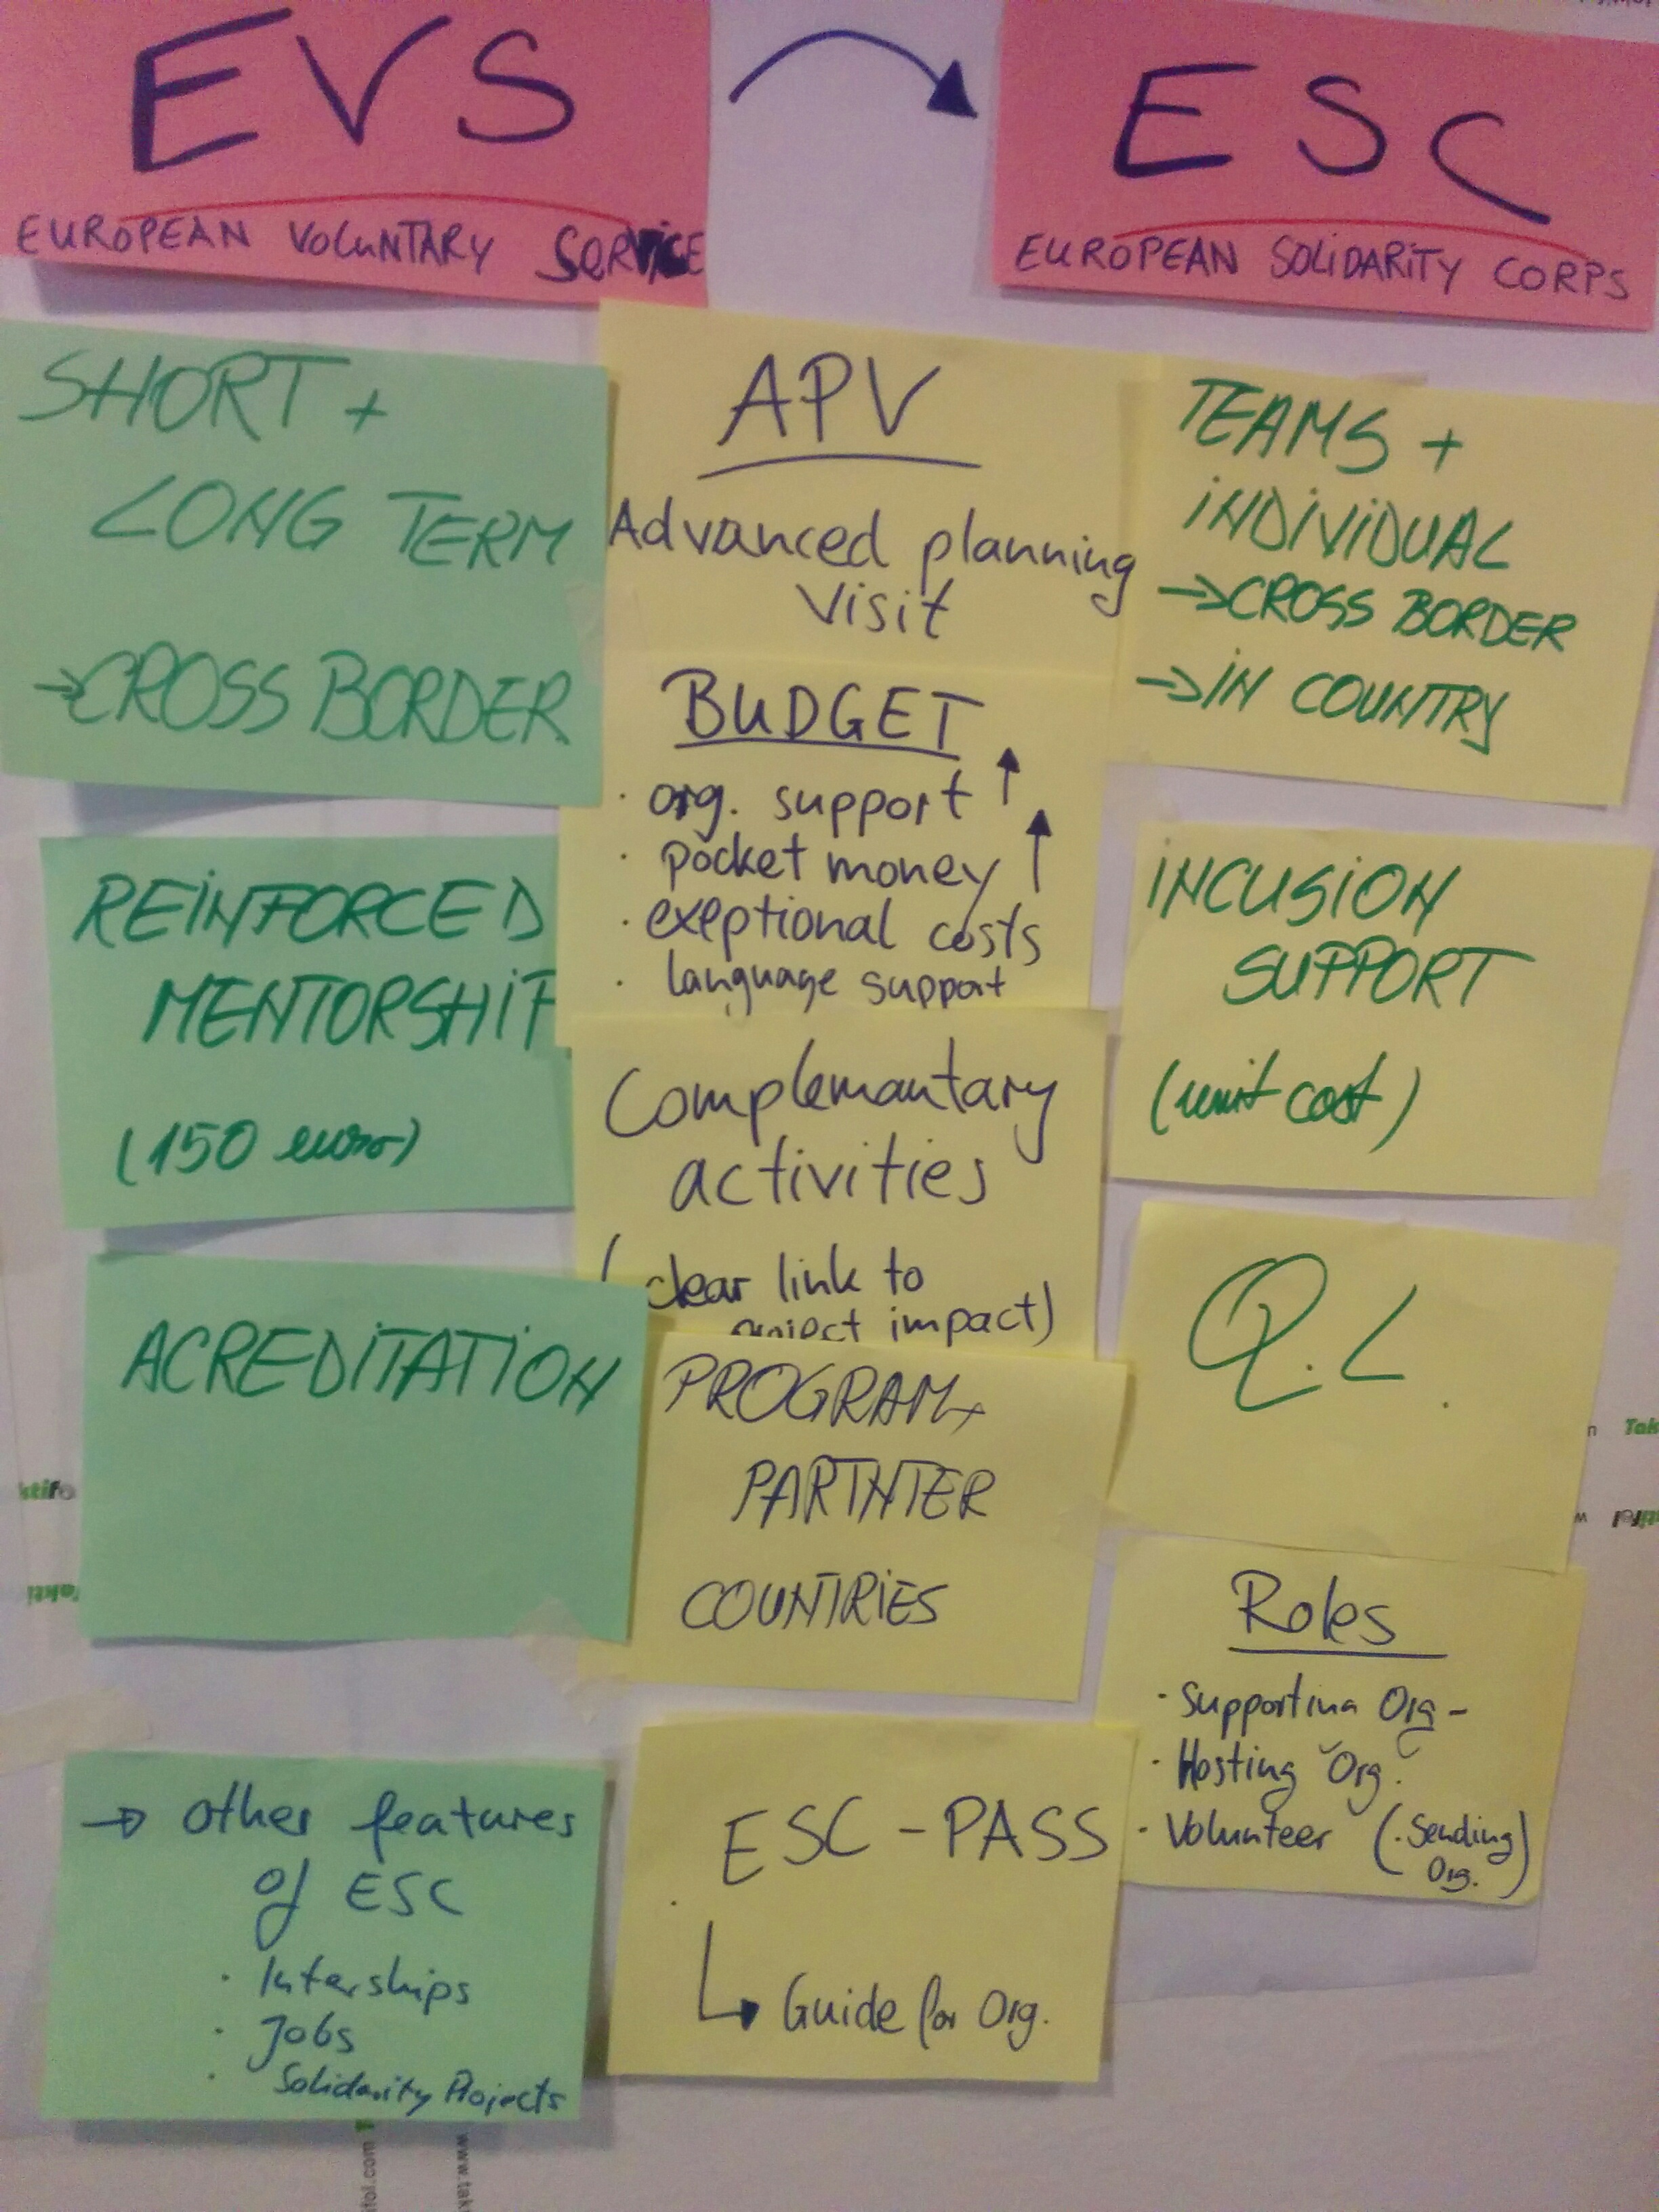 EVS
EUROPEAN VOLUNTARY SERVICE
ESC
EUROPEAN SOLIDARITY CORPS
SHORT +
LONG TERM
→CROSS BORDER
REINFORCED
MENTORSHIP
(150 euro)
ACREDITATION
→ Other features
of ESC
· Interships
· Jobs
· Solidarity Projects
APV
Advanced planning
visit
BUDGET
· org. support ↑
· pocket money ↑
· exeptional costs
· language support
Complemantary
activities
(clear link to
project impact)
PROGRAM+
PARTNTER
COUNTRIES
ESC-PASS
Guide for Org.
TEAMS +
INDIVIDUAL
→CROSS BORDER
→IN COUNTRY
INCUSION
SUPPORT
(unit cost)
Q.L.
Roles
· Supporting Org-
· Hosting Org.
· Volunteer (·Sending
Org.)